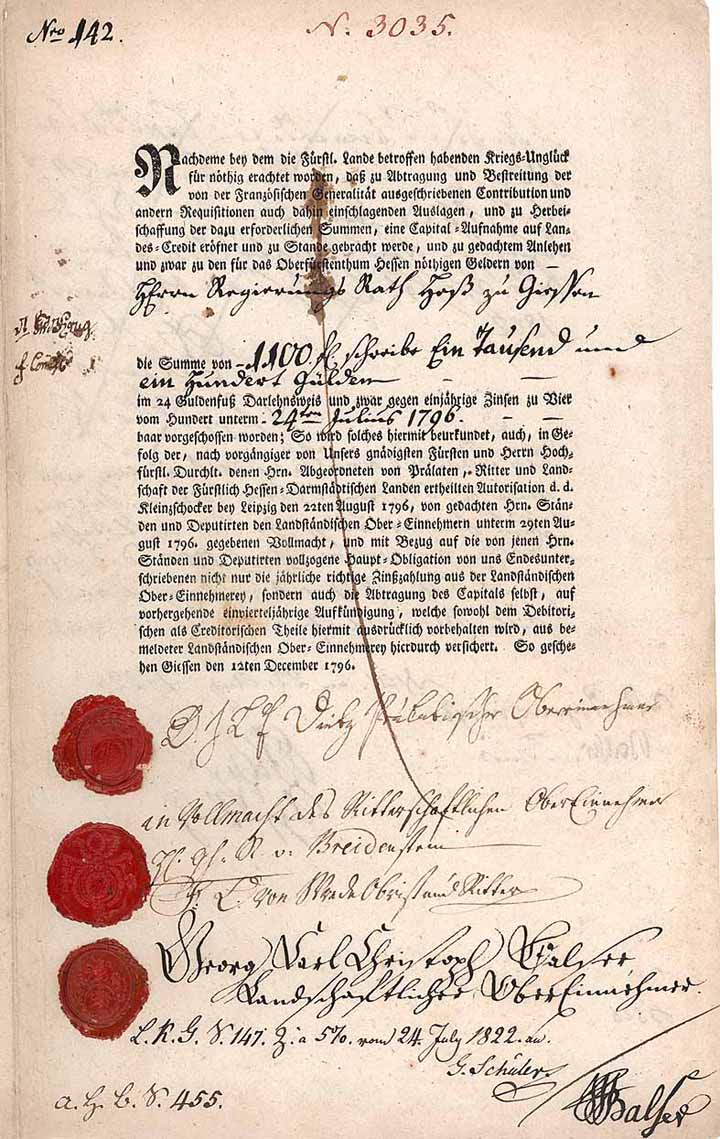 Nro 142.
N. 3035.
Nachdeme bey dem die Fürstl. Lande betroffen habenden Kriegs-Unglück
für nöthig erachtet worden, daß zu Abtragung und Bestreitung der
von der Französischen Generalität ausgeschriebenen Contribution und
andern Requisitionen auch dahin einschlagenden Auslagen, und zu Herbei-
schaffung der dazu erforderlichen Summen, eine Capital-Aufnahme auf Lan-
des-Credit eröfnet und zu Stande gebracht werde, und zu gedachtem Anlehen
und zwar zu den für das Oberfürstenthum Hessen nöthigen Geldern von —
Herrn Regierungs Rath Heß zu Giessen
die Summe von 1100 fl. schreibe Ein Tausend und
ein Hundert Gulden
im 24 Guldenfuß Darlehnsweis und zwar gegen einjährige Zinsen zu Vier
vom Hundert unterm 24ten Julius 1796.
baar vorgeschossen worden; So wird solches hiermit beurkundet, auch, in Ge-
folg der, nach vorgängiger von Unsers gnädigsten Fürsten und Herrn Hoch-
fürstl. Durchlt. denen Hrn. Abgeordneten von Prälaten, Ritter und Land-
schaft der Fürstlich Hessen-Darmstädtischen Landen ertheilten Autorisation d. d.
Kleinzschocker bey Leipzig den 22ten August 1796, von gedachten Hrn. Stän-
den und Deputirten den Landständischen Ober-Einnehmern unterm 29ten Au-
gust 1796. gegebenen Vollmacht, und mit Bezug auf die von jenen Hrn.
Ständen und Deputirten vollzogene Haupt-Obligation von uns Endesunter-
schriebenen nicht nur die jährliche richtige Zinßzahlung aus der Landständischen
Ober-Einnehmerey, sondern auch die Abtragung des Capitals selbst, auf
vorhergehende einvierteljährige Aufkündigung, welche sowohl dem Debitori-
schen als Creditorischen Theile hiermit ausdrücklich vorbehalten wird, aus be-
meldeter Landständischen Ober-Einnehmerey hierdurch versichert. So gesche-
hen Giessen den 12ten December 1796.
Dietz Prälatischer Obereinnehmer
in Vollmacht des Ritterschaftlichen OberEinnehmer
v. Breidenstein
von Wrede Obrist und Ritter
Georg Carl Christoph Balser
Landschaftlicher OberEinnehmer.
L. K. G. S. 147. Z. a 5%. vom 24. July 1822. an.
G. Schüler
Balser
a. H. B. S. 455.